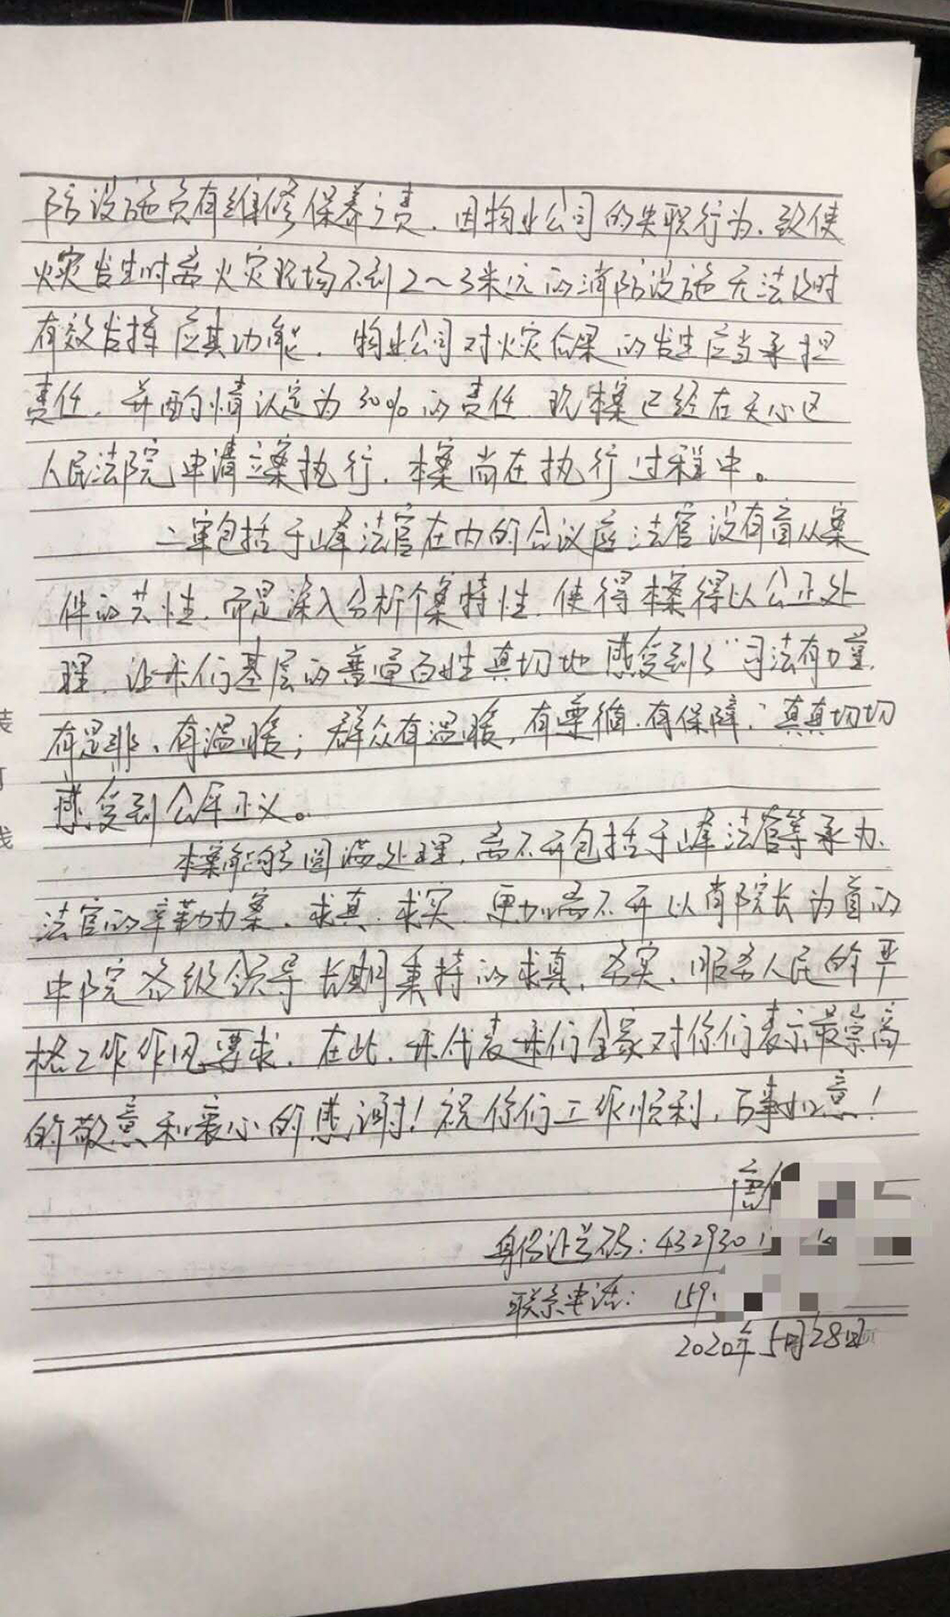 防设施负有维修保养之责，因物业公司的失职行为，致使
火灾发生时离火灾现场不到2～3米远的消防设施无法及时
有效发挥应其功能，物业公司对火灾后果的发生应当承担
责任，并酌情认定为30%的责任。现本案已经在天心区
人民法院申请立案执行，本案尚在执行过程中。
二审包括于峰法官在内的合议庭法官没有盲从案
件的共性，而是深入分析个案特性，使得本案得以公正处
理，让我们基层的普通百姓真切地感受到了“司法有力量、
有是非、有温暖；群众有温暖，有尊循，有保障，”真真切切
感受到公平正义。
本案能够圆满处理，离不开包括于峰法官等承办
法官的辛勤办案、求真、求实，更加离不开以肖院长为首的
中院各级领导长期秉持的求真、务实、服务人民的严
格工作作风要求，在此，我代表我们全家对你们表示最崇高
的敬意和衷心的感谢！祝你们工作顺利，百事如意！
唐
身份证号码：432930
联系电话：159
2020年5月28日
装
订
线